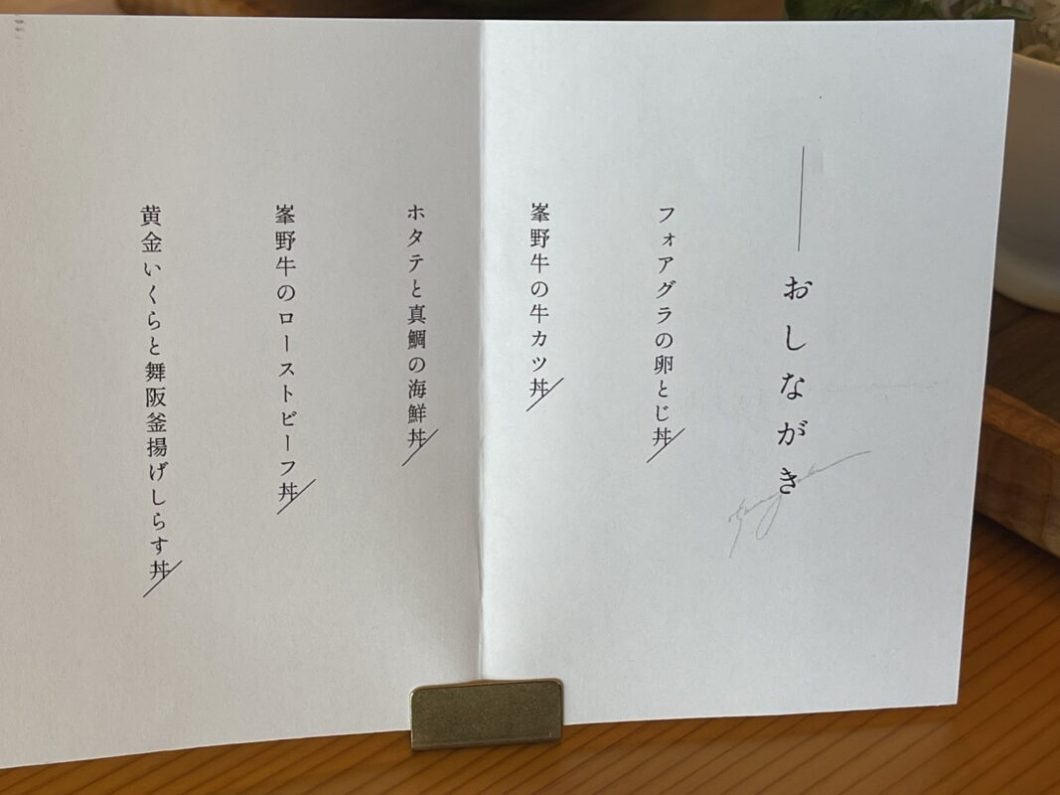 おしながき
フォアグラの卵とじ丼
峯野牛の牛カツ丼
ホタテと真鯛の海鮮丼
峯野牛のローストビーフ丼
黄金いくらと舞阪釜揚げしらす丼